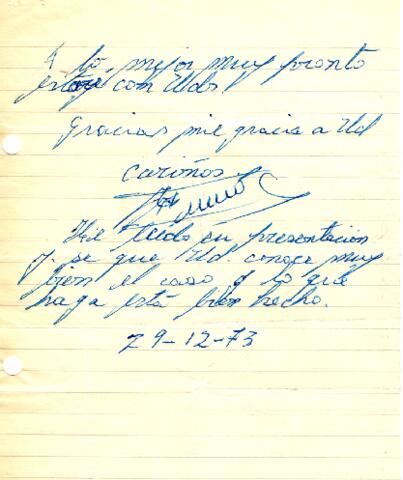 A lo mejor muy pronto
estaré con Uds.
Gracias mil gracia a Ud
Cariños
He leido en presentacion
y se que Ud conoce muy
bien el caso y lo que
haga está bien hecho.
29-12-73